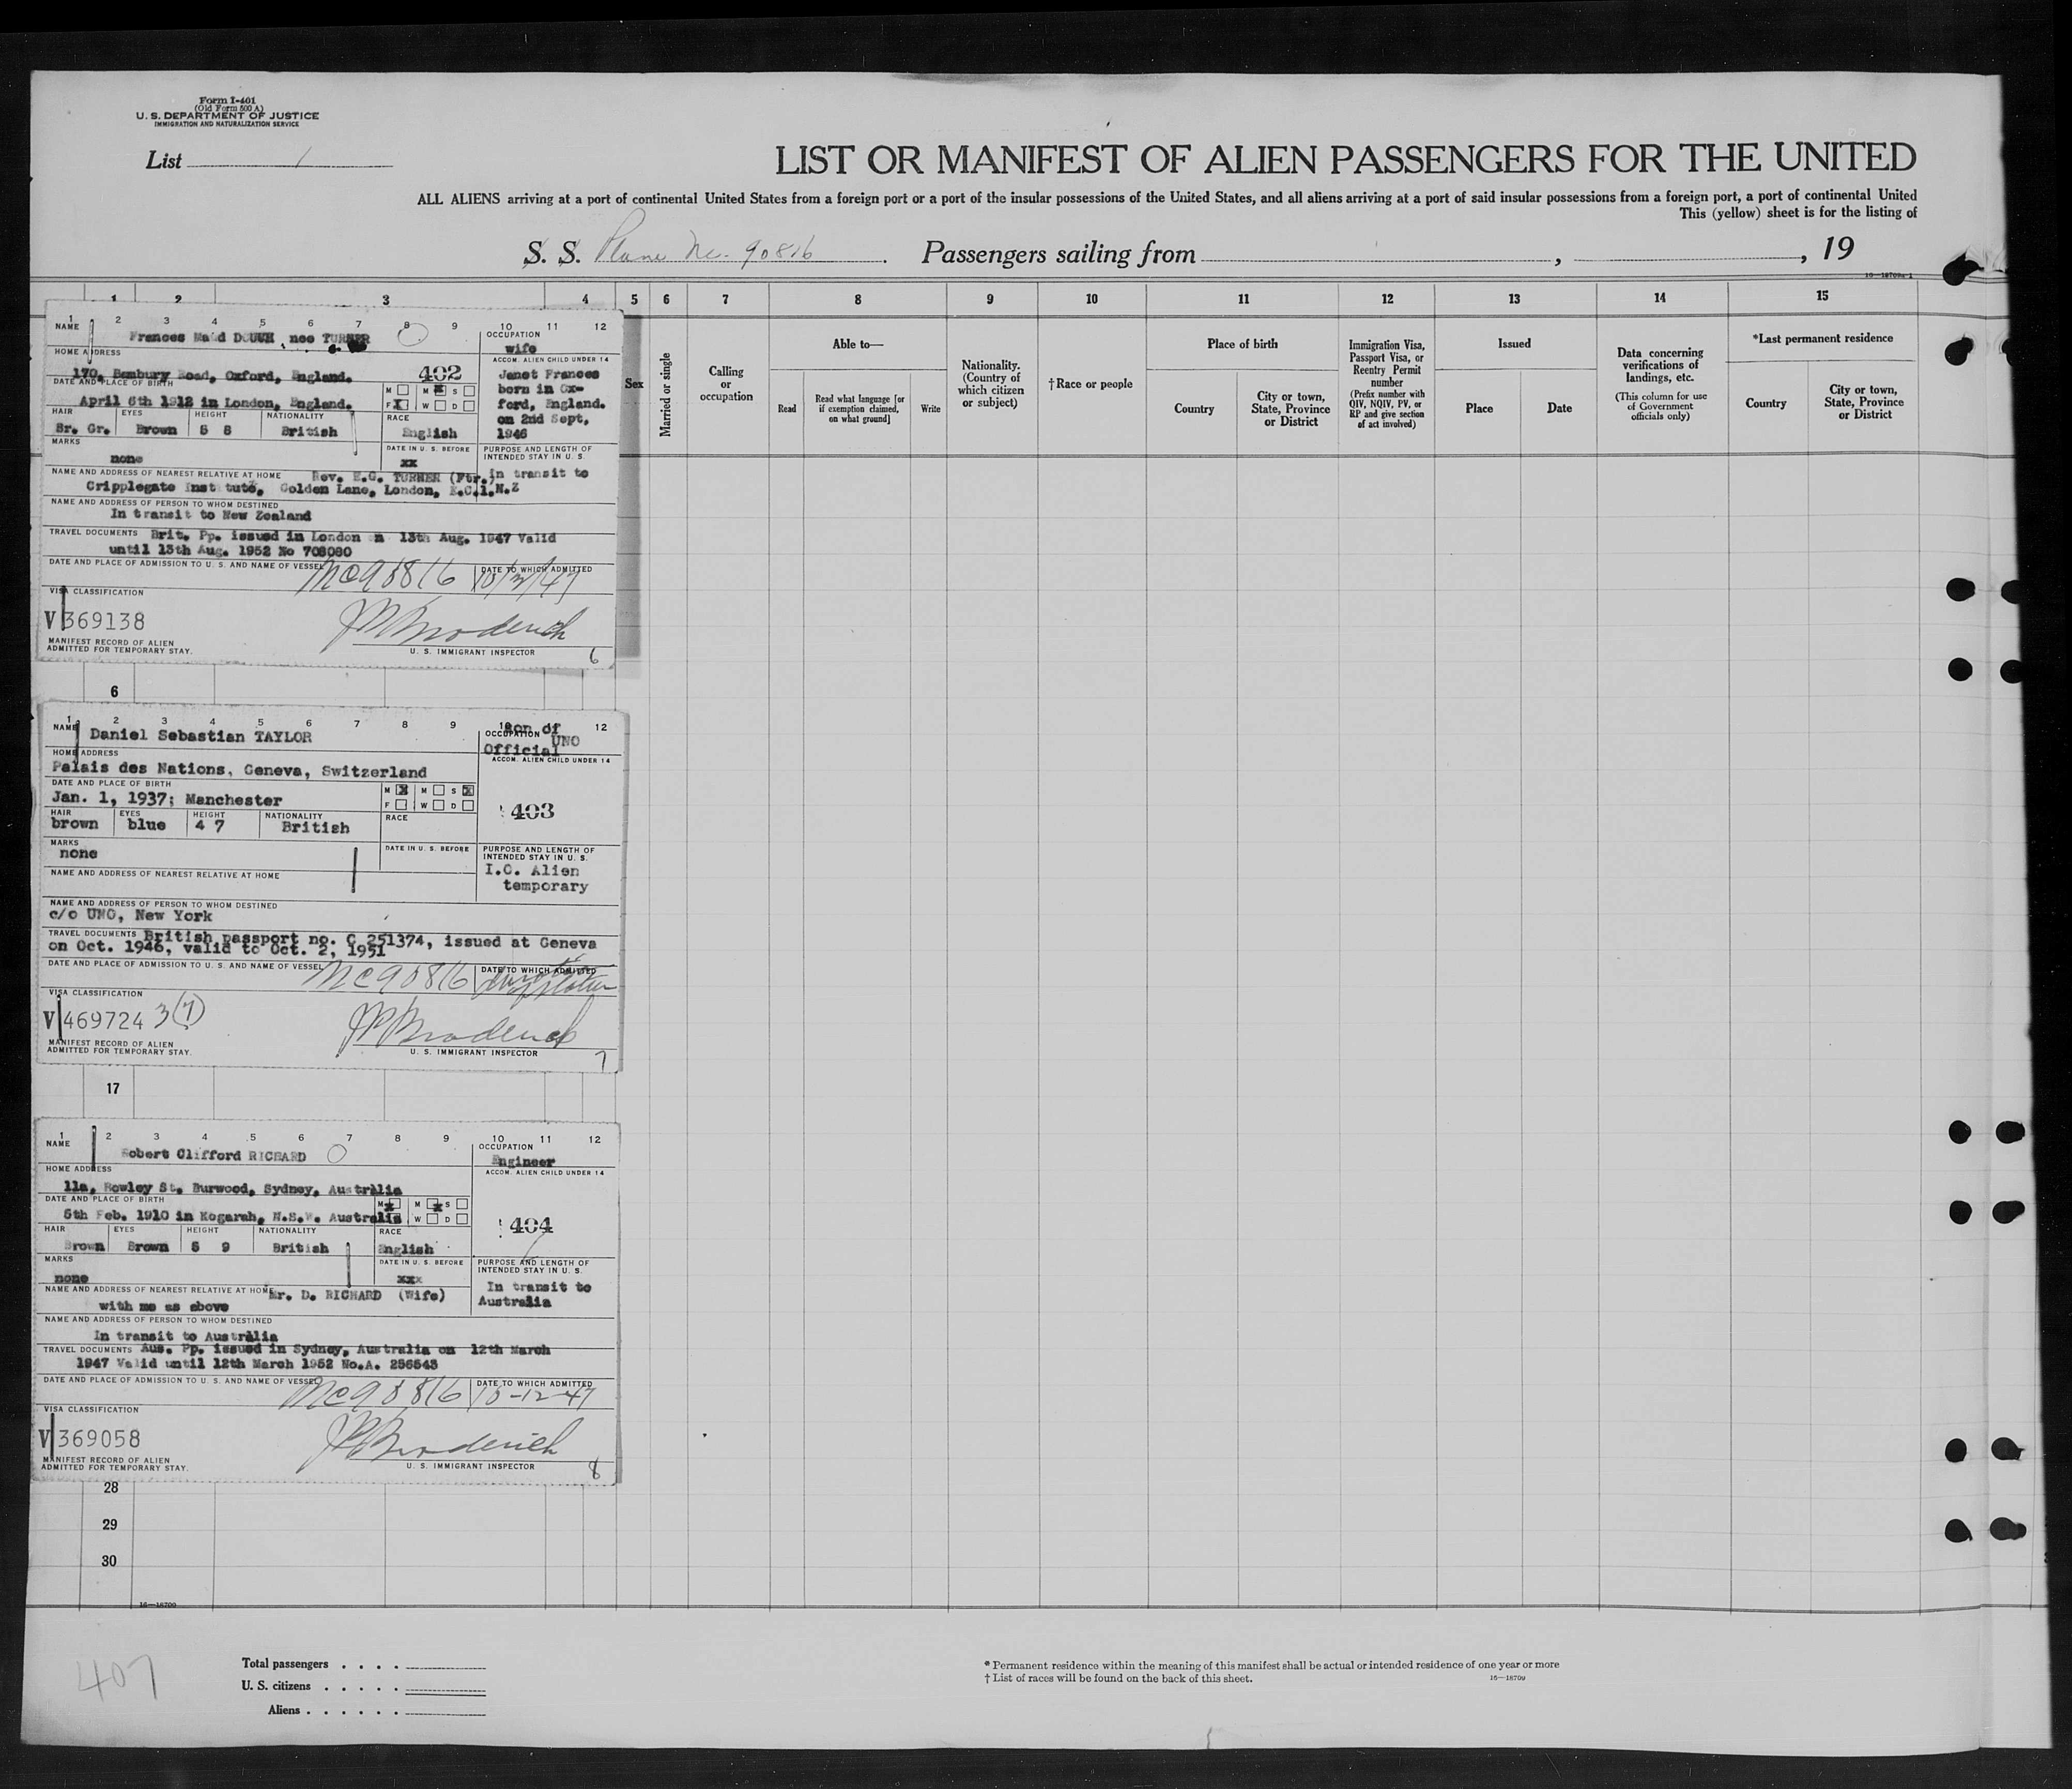 Form I-401
(Old Form 500 A)
U. S. DEPARTMENT OF JUSTICE
IMMIGRATION AND NATURALIZATION SERVICE
List 1
LIST OR MANIFEST OF ALIEN PASSENGERS FOR THE UNITED
ALL ALIENS arriving at a port of continental United States from a foreign port or a port of the insular possessions of the United States, and all aliens arriving at a port of said insular possessions from a foreign port, a port of continental United
This (yellow) sheet is for the listing of
S. S. Plane Nc. 90816 . Passengers sailing from , , 19
16—18709a-1
1 2 3 4 5 6 7 8 9 10 11 12 13 14 15
Sex
Married or single
Calling or occupation
Able to—
Read
Read what language [or if exemption claimed, on what ground]
Write
Nationality. (Country of which citizen or subject)
†Race or people
Place of birth
Country
City or town, State, Province or District
Immigration Visa, Passport Visa, or Reentry Permit number
(Prefix number with QIV, NQIV, PV, or RP and give section of act involved)
Issued
Place
Date
Data concerning verifications of landings, etc.
(This column for use of Government officials only)
*Last permanent residence
Country
City or town, State, Province or District
1 2 3 4 5 6 7 8 9 10 11 12
NAME
Frances Maud nee TURNER
OCCUPATION
wife
HOME ADDRESS
170, Banbury Road, Oxford, England.
402
ACCOM. ALIEN CHILD UNDER 14
Janet Frances
born in Ox-
ford, England.
on 2nd Sept,
1946
DATE AND PLACE OF BIRTH
April 6th 1912 in London, England.
M M S
F X W D
HAIR EYES HEIGHT NATIONALITY RACE
Br. Gr. Brown 5 8 British English
MARKS
none
DATE IN U. S. BEFORE
xx
PURPOSE AND LENGTH OF INTENDED STAY IN U. S.
in transit to
N.Z
NAME AND ADDRESS OF NEAREST RELATIVE AT HOME Rev. E.G. TURNER (Ftr.)
Cripplegate Institute, Golden Lane, London, E.C.1.
NAME AND ADDRESS OF PERSON TO WHOM DESTINED
In transit to New Zealand
TRAVEL DOCUMENTS Brit. Pp. issued in London on 13th Aug. 1947 Valid
until 13th Aug. 1952 No 708080
DATE AND PLACE OF ADMISSION TO U. S. AND NAME OF VESSEL NC90816
DATE TO WHICH ADMITTED
VISA CLASSIFICATION
V 369138
MANIFEST RECORD OF ALIEN
ADMITTED FOR TEMPORARY STAY.
J P Broderick
U. S. IMMIGRANT INSPECTOR
6
6
1 2 3 4 5 6 7 8 9 10 12
NAME Daniel Sebastian TAYLOR
OCCUPATION
son of
UNO
Official
HOME ADDRESS
Palais des Nations, Geneva, Switzerland
ACCOM. ALIEN CHILD UNDER 14
DATE AND PLACE OF BIRTH
Jan. 1, 1937; Manchester
M X M S X
F W D
403
HAIR EYES HEIGHT NATIONALITY RACE
brown blue 4 7 British
MARKS
none
DATE IN U. S. BEFORE
PURPOSE AND LENGTH OF INTENDED STAY IN U. S.
I.O. Alien
temporary
NAME AND ADDRESS OF NEAREST RELATIVE AT HOME
NAME AND ADDRESS OF PERSON TO WHOM DESTINED
c/o UNO, New York
TRAVEL DOCUMENTS British passport no. C 251374, issued at Geneva
on Oct. 1946, valid to Oct. 2, 1951
DATE AND PLACE OF ADMISSION TO U. S. AND NAME OF VESSEL NC90816
DATE TO WHICH ADMITTED
VISA CLASSIFICATION
V 469724 3(7)
MANIFEST RECORD OF ALIEN
ADMITTED FOR TEMPORARY STAY.
J P Broderick
U. S. IMMIGRANT INSPECTOR
7
17
1 2 3 4 5 6 7 8 9 10 11 12
NAME
Robert Clifford RICHARD
OCCUPATION
Engineer
HOME ADDRESS
11a, Rowley St. Burwood, Sydney, Australia
ACCOM. ALIEN CHILD UNDER 14
DATE AND PLACE OF BIRTH
6th Feb. 1910 in Kogarah, N.S.W. Australia
M M S
W D
404
HAIR EYES HEIGHT NATIONALITY RACE
Brown Brown 5 9 British English
MARKS
none
DATE IN U. S. BEFORE
xxx
PURPOSE AND LENGTH OF INTENDED STAY IN U. S.
In transit to
Australia
NAME AND ADDRESS OF NEAREST RELATIVE AT HOME Mr. D. RICHARD (Wife)
with me as above
NAME AND ADDRESS OF PERSON TO WHOM DESTINED
In transit to Australia
TRAVEL DOCUMENTS Aus. Pp. issued in Sydney, Australia on 12th March
1947 Valid until 12th March 1952 No.A. 256543
DATE AND PLACE OF ADMISSION TO U. S. AND NAME OF VESSEL NC90816
DATE TO WHICH ADMITTED
10-12-47
VISA CLASSIFICATION
V 369058
MANIFEST RECORD OF ALIEN
ADMITTED FOR TEMPORARY STAY.
J P Broderick
U. S. IMMIGRANT INSPECTOR
8
28
29
30
16—18709
407
Total passengers . . . .
U. S. citizens . . . . .
Aliens . . . . . .
* Permanent residence within the meaning of this manifest shall be actual or intended residence of one year or more
† List of races will be found on the back of this sheet.
16—18709